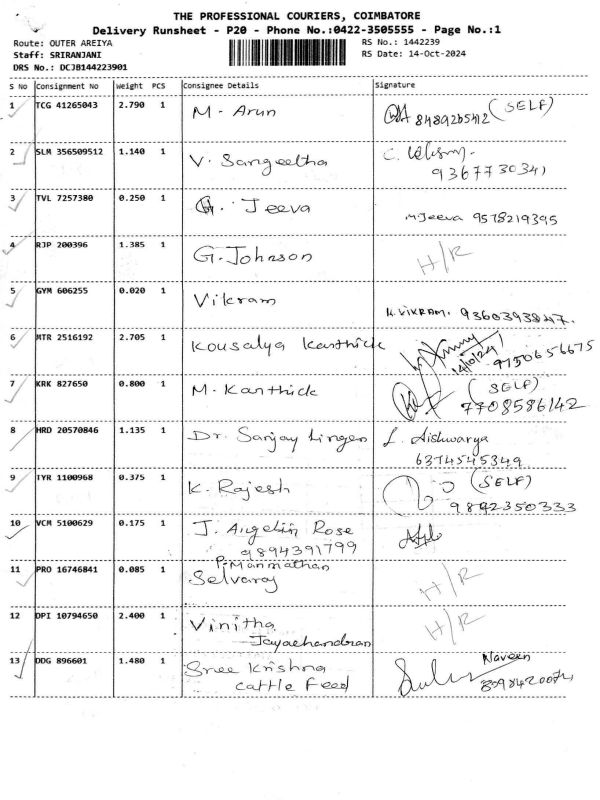 THE PROFESSIONAL COURIERS, COIMBATORE
Delivery Runsheet - P20 - Phone No.:0422-3505555 - Page No.:1
Route: OUTER AREIYA
RS No.: 1442239
Staff: SRIRANJANI
RS Date: 14-Oct-2024
DRS No.: DCJB144223901
S No Consignment No Weight PCS Consignee Details Signature
1 TCG 41265043 2.790 1 M. Arun (SELF)
8489265412
2 SLM 356509512 1.140 1 V. Sangeetha C.
9367730341
3 TVL 7257380 0.250 1 G. Jeeva M.Jeeva 9578219395
4 RJP 200396 1.385 1 G. Johnson H/R
5 GYM 606255 0.020 1 Vikram K.VIKRAM. 9360393847.
6 MTR 2516192 2.705 1 Kousalya Karthick 14/10/24 9750656675
7 KRK 827650 0.800 1 M. Karthick (SELF)
7708586142
8 HRD 20570846 1.135 1 Dr. Sanjay Lingen L. Aishwarya
6374545349
9 TYR 1100968 0.375 1 K. Rajesh (SELF)
9842350333
10 VCM 5100629 0.175 1 J. Angelin Rose
9894391799
11 PRO 16746841 0.085 1 P. Manmathan
Selvaraj H/R
12 DPI 10794650 2.400 1 Vinitha H/R
Jayachandran
13 DDG 896601 1.480 1 Sree Krishna Naveen
cattle Feed